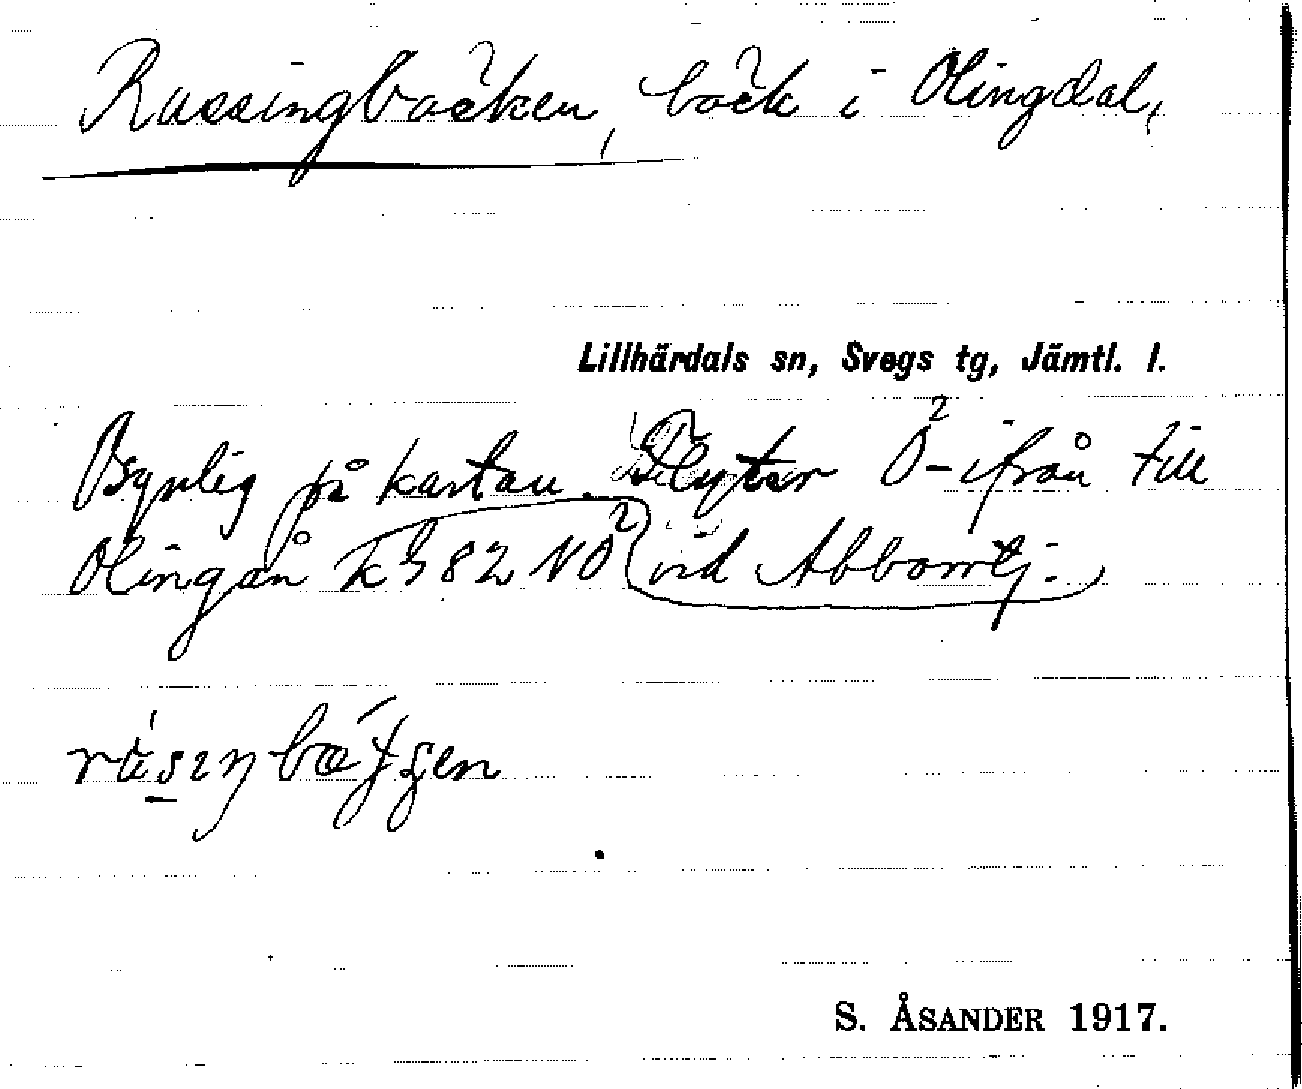 Russingbäcken, bäck i Olingdal,
Lillhärdals sn, Svegs tg, Jämtl. l.
Osynlig på kartan. Flyter Ö-ifrån till
Olingån k 382 NÖ vid Abbomtj.
S. ÅSANDER 1917.